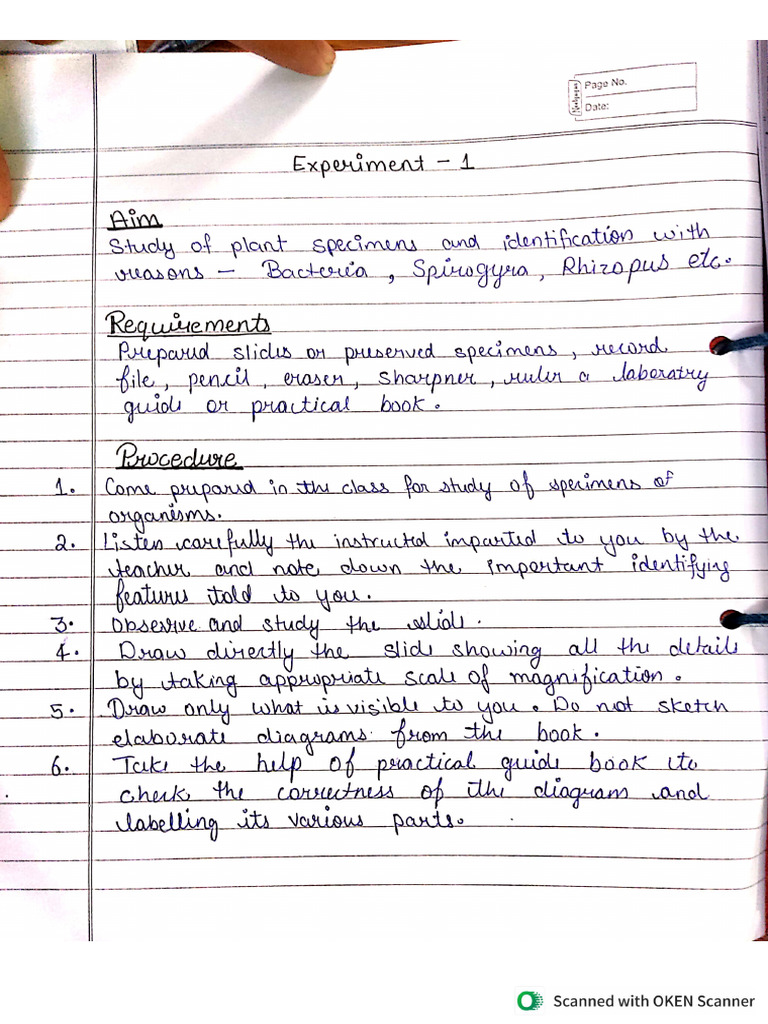 Page No.
Date:
Experiment - 1
Aim
Study of plant specimens and identification with
reasons - Bacteria, Spirogyra, Rhizopus etc.
Requirements
Prepared slides or preserved specimens, record
file, pencil, eraser, sharpner, ruler a laboratry
guide or practical book.
Procedure
1. Come prepared in the class for study of specimens of
organisms.
2. Listen carefully the instructed imparted to you by the
teacher and note down the important identifying
features told to you.
3. Observe and study the slide.
4. Draw directly the slide showing all the details
by taking appropriate scale of magnification.
5. Draw only what is visible to you. Do not sketch
elaborate diagrams from the book.
6. Take the help of practical guide book to
check the correctness of the diagram and
labelling its various parts.
Scanned with OKEN Scanner